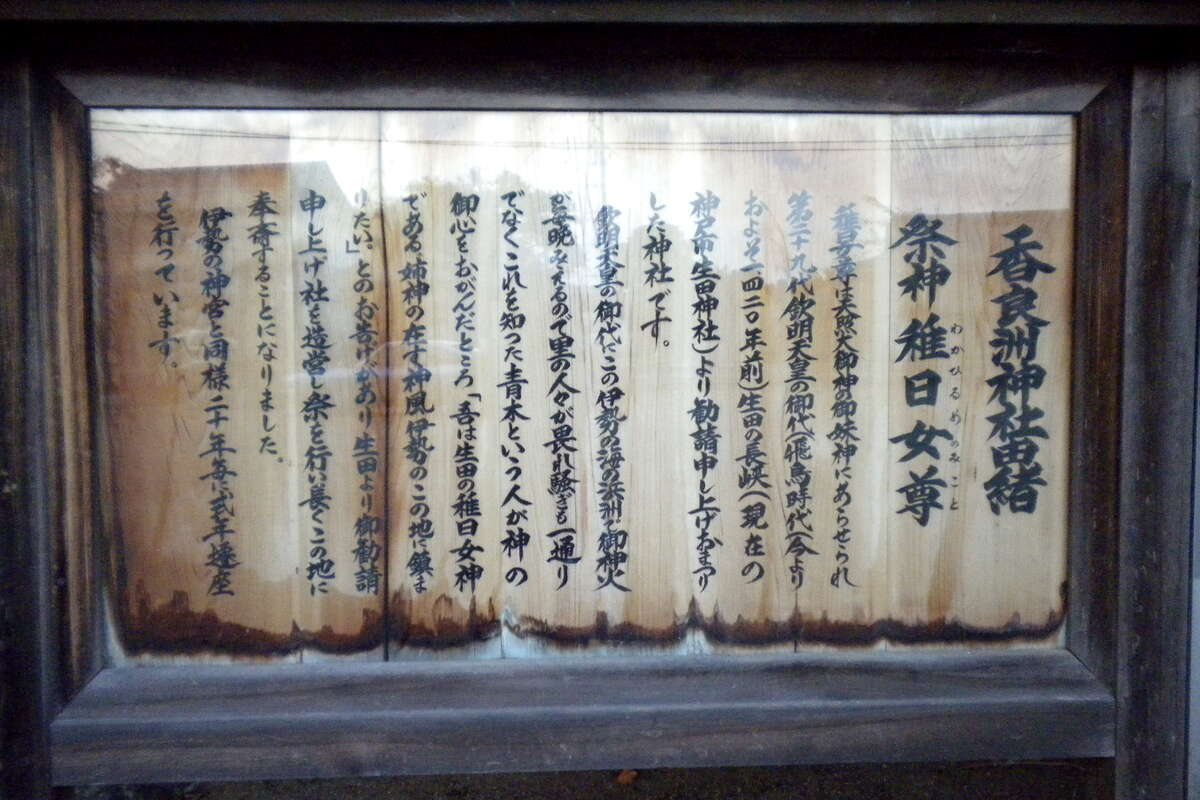 香良洲神社由緒
祭神 稚日女尊
わかひるめのみこと
稚日女尊は天照大御神の御妹神にあらせられ
第二十九代欽明天皇の御代(飛鳥時代(今より
およそ一、四二〇年前)生田の長峡(現在の
神戸市生田神社)より勧請申し上げおまつり
した神社です。
欽明天皇の御代にこの伊勢の海の浜洲に御神火
が毎晩みえるので里の人々が畏れ騒ぎも一通り
でなくこれを知った青木という人が神の
御心をおがんだところ「吾は生田の稚日女神
である、姉神の在す神風伊勢のこの地に鎮ま
りたい」とのお告げがあり生田より御勧請
申し上げ社を造営し祭を行い善くこの地に
奉斎することになりました。
伊勢の神宮と同様二十年毎に式年遷座
を行っています。